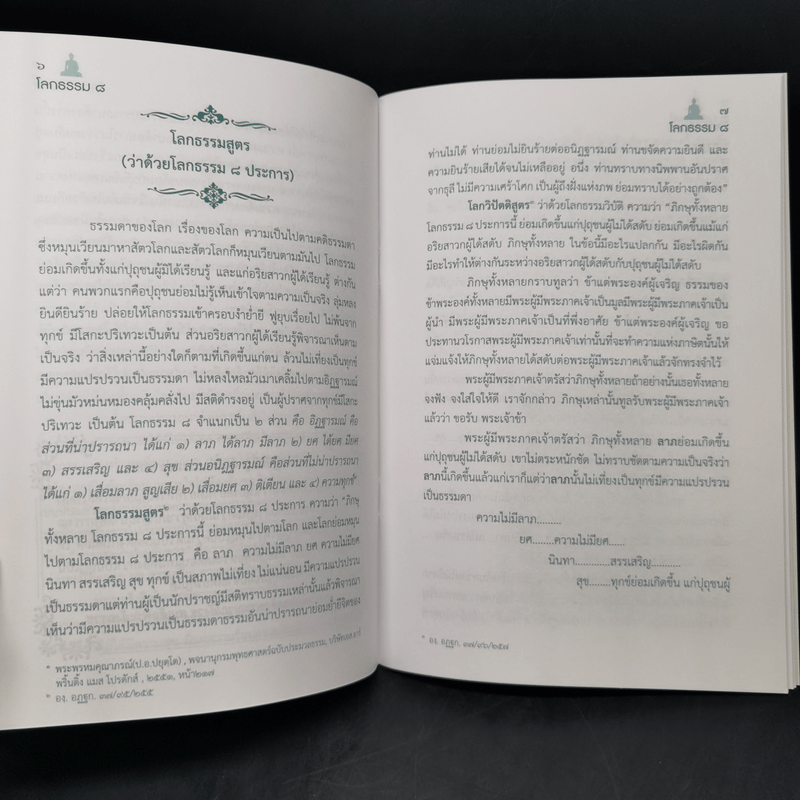 ๖
โลกธรรม ๘
โลกธรรมสูตร
(ว่าด้วยโลกธรรม ๘ ประการ)
ธรรมดาของโลก เรื่องของโลก ความเป็นไปตามคติธรรมดา
ซึ่งหมุนเวียนมาหาสัตว์โลกและสัตว์โลกก็หมุนเวียนตามมันไป โลกธรรม
ย่อมเกิดขึ้นทั้งแก่ปุถุชนผู้มิได้เรียนรู้ และแก่อริยสาวกผู้ได้เรียนรู้ ต่างกัน
แต่ว่า คนพวกแรกคือปุถุชนย่อมไม่รู้เห็นเข้าใจตามความเป็นจริง ลุ่มหลง
ยินดียินร้าย ปล่อยให้โลกธรรมเข้าครอบงำย่ำยี ฟูยุบเรื่อยไป ไม่พ้นจาก
ทุกข์ มีโสกะปริเทวะเป็นต้น ส่วนอริยสาวกผู้ได้เรียนรู้พิจารณาเห็นตาม
เป็นจริง ว่าสิ่งเหล่านี้อย่างใดก็ตามที่เกิดขึ้นแก่ตน ล้วนไม่เที่ยงเป็นทุกข์
มีความแปรปรวนเป็นธรรมดา ไม่หลงใหลมัวเมาเคลิ้มไปตามอิฏฐารมณ์
ไม่ขุ่นมัวหม่นหมองคลุ้มคลั่งไป มีสติดำรงอยู่ เป็นผู้ปราศจากทุกข์มีโสกะ
ปริเทวะ เป็นต้น โลกธรรม ๘ จำแนกเป็น ๒ ส่วน คือ อิฏฐารมณ์ คือ
ส่วนที่น่าปรารถนา ได้แก่ ๑) ลาภ ได้ลาภ มีลาภ ๒) ยศ ได้ยศ มียศ
๓) สรรเสริญ และ ๔) สุข ส่วนอนิฏฐารมณ์ คือส่วนที่ไม่น่าปรารถนา
ได้แก่ ๑) เสื่อมลาภ สูญเสีย ๒) เสื่อมยศ ๓) ติเตียน และ ๔) ความทุกข์
โลกธรรมสูตร ว่าด้วยโลกธรรม ๘ ประการ ความว่า "ภิกษุ
ทั้งหลาย โลกธรรม ๘ ประการนี้ ย่อมหมุนไปตามโลก และโลกย่อมหมุน
ไปตามโลกธรรม ๘ ประการ คือ ลาภ ความไม่มีลาภ ยศ ความไม่มียศ
นินทา สรรเสริญ สุข ทุกข์ เป็นสภาพไม่เที่ยง ไม่แน่นอน มีความแปรปรวน
เป็นธรรมดาแต่ท่านผู้เป็นนักปราชญ์มีสติทราบธรรมเหล่านั้นแล้วพิจารณา
เห็นว่ามีความแปรปรวนเป็นธรรมดาธรรมอันน่าปรารถนาย่อมย่ำยีจิตของ
พระพรหมคุณาภรณ์(ป.อ.ปยุตโต) , พจนานุกรมพุทธศาสตร์ฉบับประมวลธรรม, บริษัทเอส.อาร์
พริ้นติ้ง แมส โปรดักส์ , ๒๕๕๑, หน้า๒๑๗
อง. อฏฐก. ๓๗/๙๕/๒๕๕
๗
โลกธรรม ๘
ท่านไม่ได้ ท่านย่อมไม่ยินร้ายต่ออนิฏฐารมณ์ ท่านขจัดความยินดี และ
ความยินร้ายเสียได้จนไม่เหลืออยู่ อนึ่ง ท่านทราบทางนิพพานอันปราศ
จากธุลี ไม่มีความเศร้าโศก เป็นผู้ถึงฝั่งแห่งภพ ย่อมทราบได้อย่างถูกต้อง"
โลกวิปัตติสูตร ว่าด้วยโลกธรรมวิบัติ ความว่า "ภิกษุทั้งหลาย
โลกธรรม ๘ ประการนี้ ย่อมเกิดขึ้นแก่ปุถุชนผู้ไม่ได้สดับ ย่อมเกิดขึ้นแม้แก่
อริยสาวกผู้ได้สดับ ภิกษุทั้งหลาย ในข้อนี้มีอะไรแปลกกัน มีอะไรผิดกัน
มีอะไรทำให้ต่างกันระหว่างอริยสาวกผู้ได้สดับกับปุถุชนผู้ไม่ได้สดับ
ภิกษุทั้งหลายกราบทูลว่า ข้าแต่พระองค์ผู้เจริญ ธรรมของ
ข้าพระองค์ทั้งหลายมีพระผู้มีพระภาคเจ้าเป็นมูลมีพระผู้มีพระภาคเจ้าเป็น
ผู้นำ มีพระผู้มีพระภาคเจ้าเป็นที่พึ่งอาศัย ข้าแต่พระองค์ผู้เจริญ ขอ
ประทานวโรกาสพระผู้มีพระภาคเจ้าเท่านั้นที่จะทำความแห่งภาษิตนั้นให้
แจ่มแจ้งให้ภิกษุทั้งหลายได้สดับต่อพระผู้มีพระภาคเจ้าแล้วจักทรงจำไว้
พระผู้มีพระภาคเจ้าตรัสว่าภิกษุทั้งหลายถ้าอย่างนั้นเธอทั้งหลาย
จงฟัง จงใส่ใจให้ดี เราจักกล่าว ภิกษุเหล่านั้นทูลรับพระผู้มีพระภาคเจ้า
แล้วว่า ขอรับ พระเจ้าข้า
พระผู้มีพระภาคเจ้าตรัสว่า ภิกษุทั้งหลาย ลาภย่อมเกิดขึ้น
แก่ปุถุชนผู้ไม่ได้สดับ เขาไม่ตระหนักชัด ไม่ทราบชัดตามความเป็นจริงว่า
ลาภนี้เกิดขึ้นแล้วแก่เราก็แต่ว่าลาภนั้นไม่เที่ยงเป็นทุกข์มีความแปรปรวน
เป็นธรรมดา
ความไม่มีลาภ.........
ยศ.......ความไม่มียศ......
นินทา.........สรรเสริญ......
สุข.......ทุกข์ย่อมเกิดขึ้น แก่ปุถุชนผู้
อง. อฏฐก. ๓๗/๙๖/๒๕๗